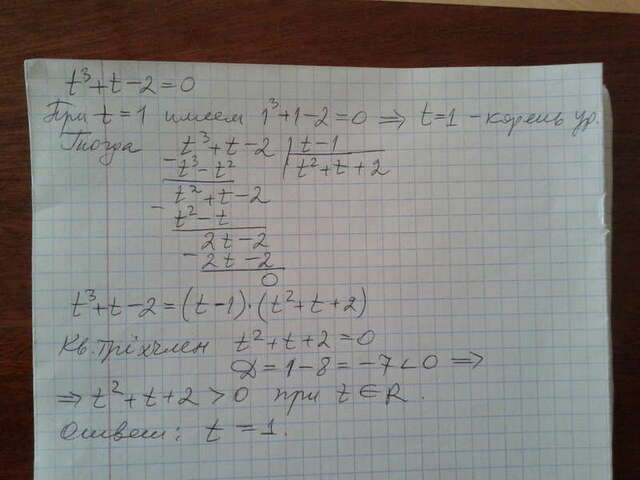 t³+t-2=0
При t=1 имеем 1³+1-2=0 ⇒ t=1 - корень ур.
Тогда t³+t-2 | t-1
- t³-t² | t²+t+2
t²+t-2
- t²-t
2t-2
- 2t-2
0
t³+t-2=(t-1)·(t²+t+2)
Кв. тріхчлен t²+t+2=0
D=1-8=-7<0 ⇒
⇒ t²+t+2>0 при t∈R.
Ответ: t=1.